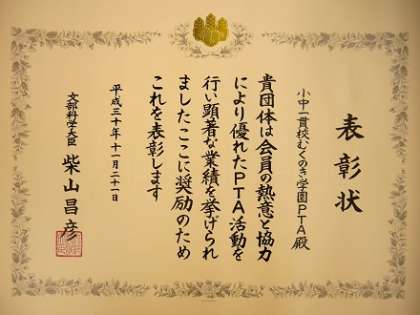 表彰状
小中一貫校むくのき学園PTA殿
貴団体は会員の熱意と協力
により優れたPTA活動を
行い顕著な業績を挙げられ
ましたここに奨励のため
これを表彰します
平成三十年十一月二十一日
文部科学大臣 柴山昌彦